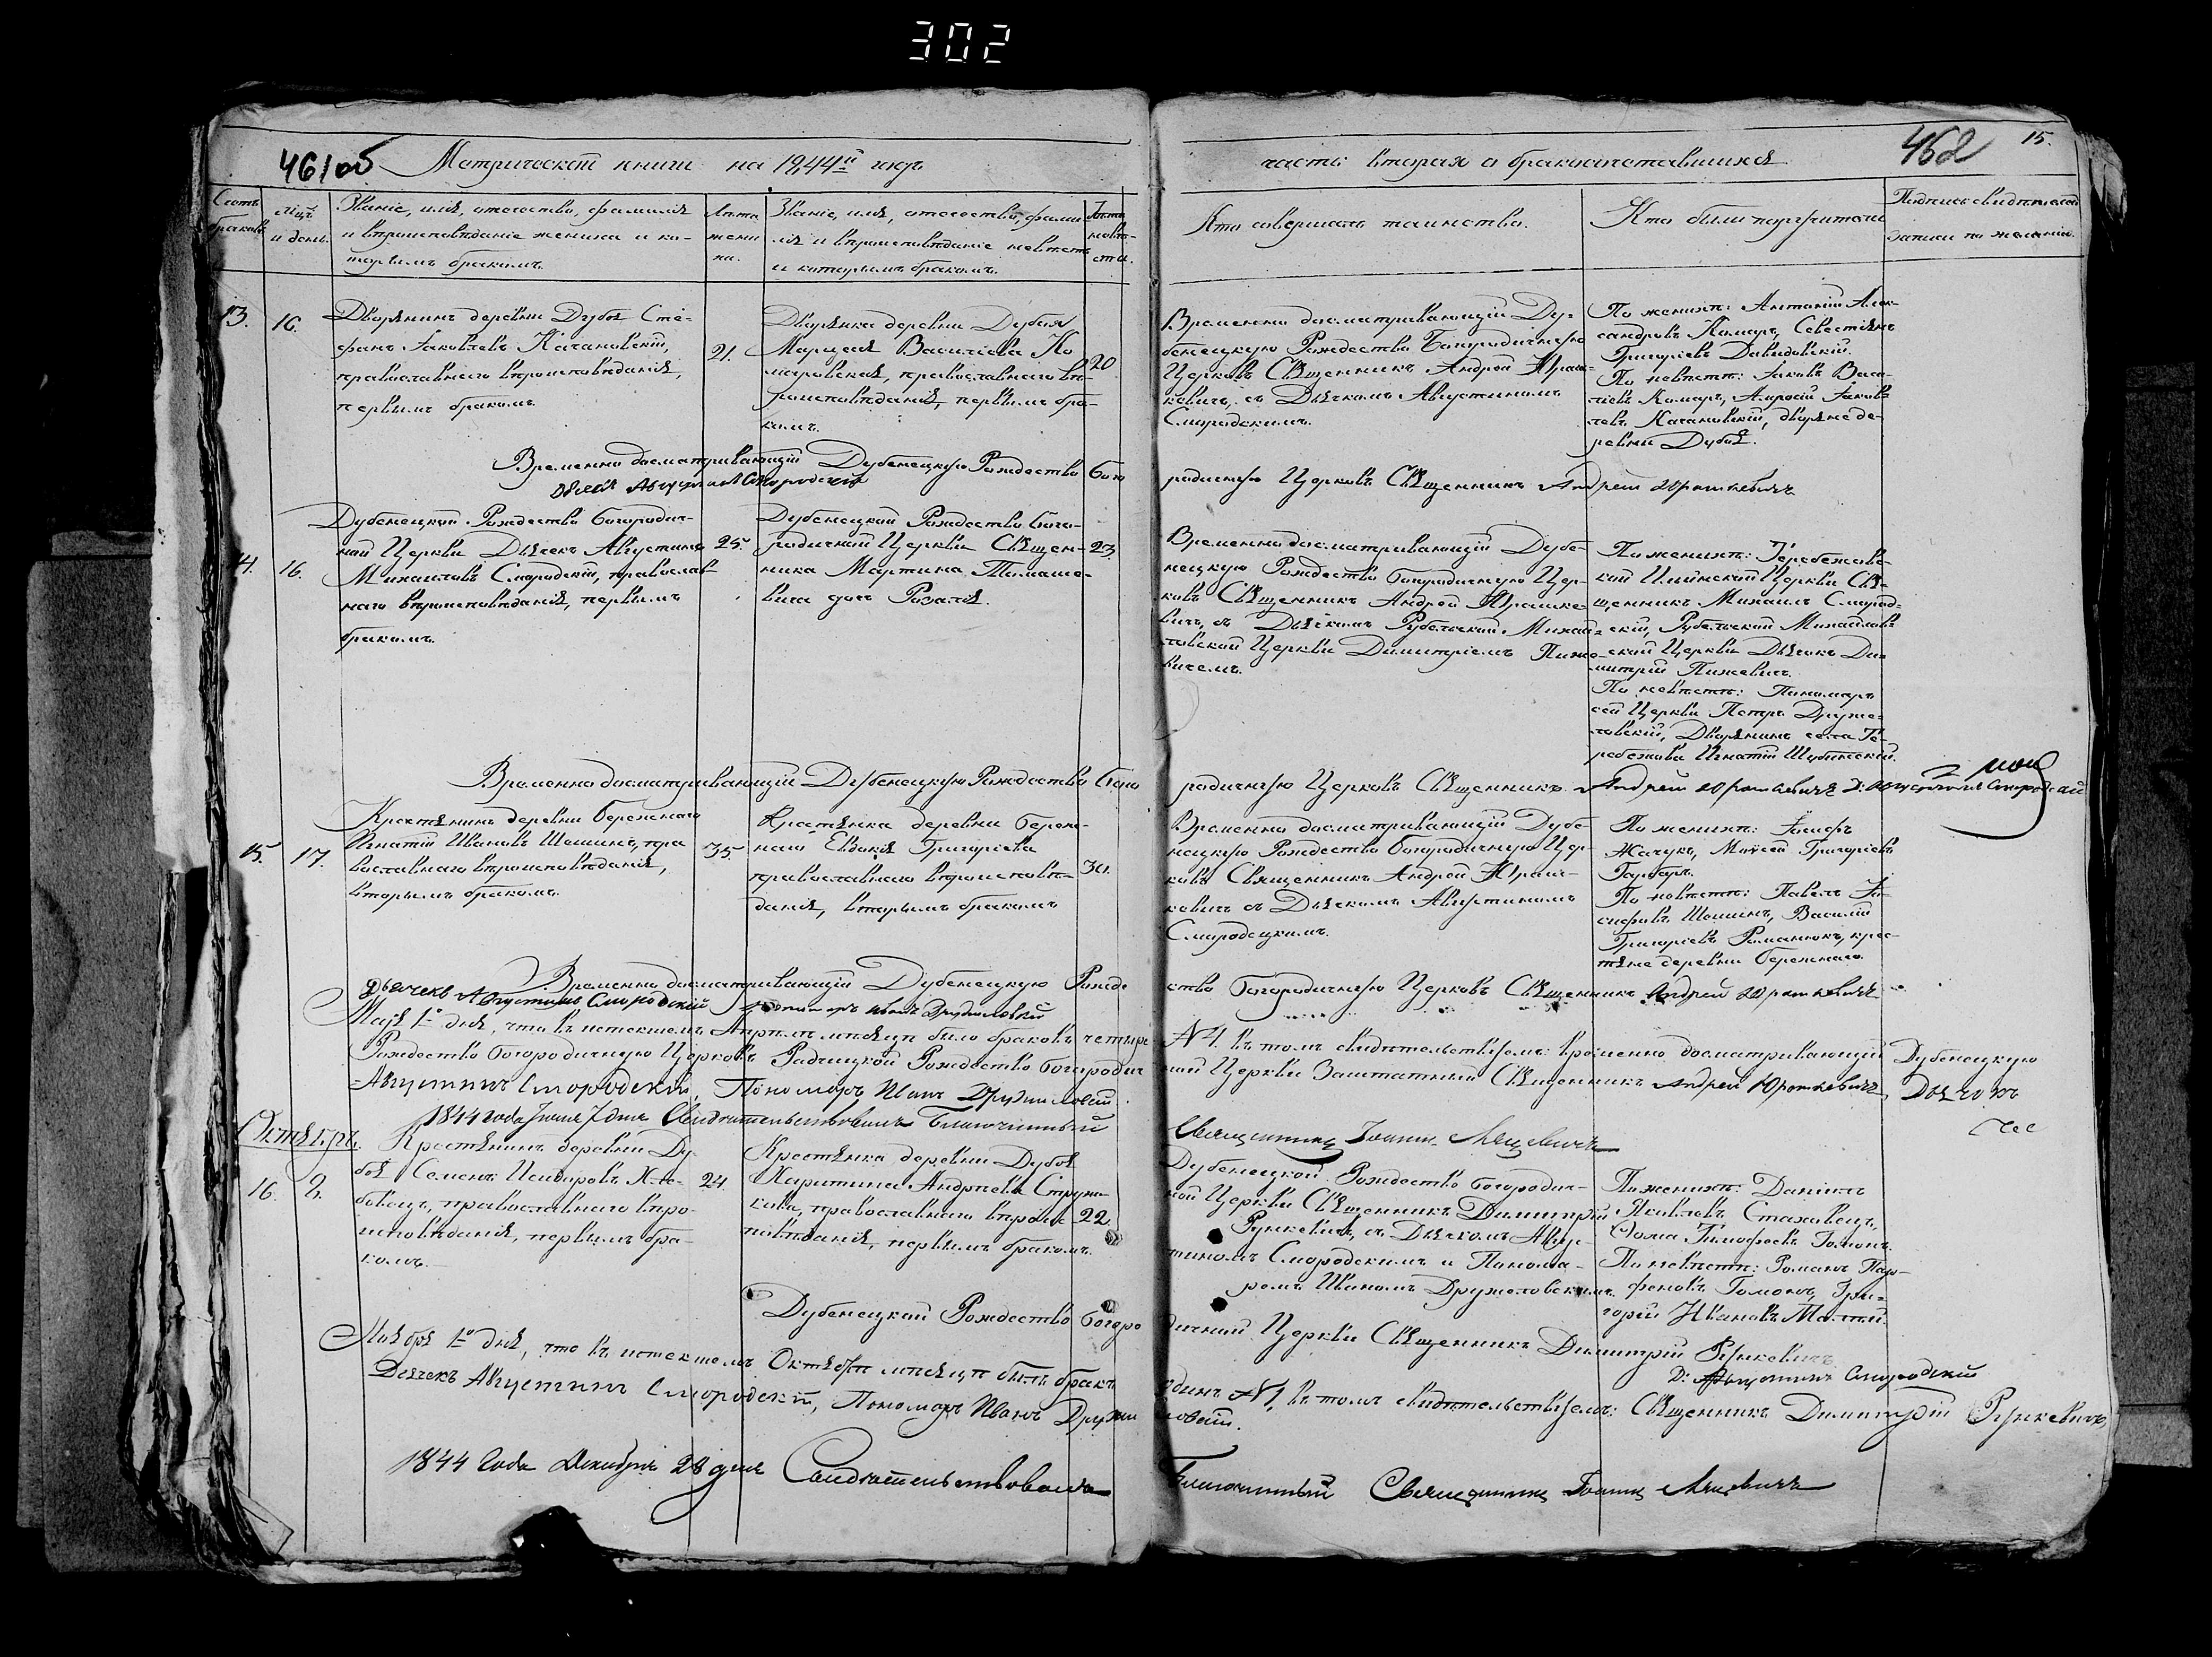 302
461об Метрической книги на 1844й годъ
часть вторая о бракосочетавшихся
462
15.
Счетъ браковъ.
Мцъ и день.
Званіе, имя, отечество, фамилія
и вѣроисповѣданіе жениха и ко-
торымъ бракомъ.
Лѣта
жени
ха.
Званіе, имя, отечество, фами
лія и вѣроисповѣданіе невѣсты
и которымъ бракомъ.
Лѣта
невѣ-
сты.
Кто совершалъ таинство.
Кто были поручители
Подпись свидѣтелей
записи по желанію.
13.
16.
Дворянинъ деревни Дубоя Сте-
фанъ Іаковлевъ Качановскій,
православнаго вѣроисповѣданія,
первымъ бракомъ.
21.
Дворянка деревни Дубоя
Васильева Ко
маровская, православнаго вѣ-
роисповѣданія, первымъ бра-
комъ.
20
Временно досматривающій Ду-
бенецкую Рождество Богородичную
Церковь Священникъ Андрей Юраш-
кевичъ, съ Дьячкомъ Августиномъ
Смородскимъ.
По женихѣ: Антоній Алек-
сандровъ Комаръ, Севестіянъ
Григоріевъ Давидовскій.
По невѣстѣ: Іаковъ Васи-
лІевъ Комаръ, Іаков-
левъ Качановскій, дворяне де-
ревни Дубоя.
Временно досматривающій Дубенецкую Рождество Бого
родичную Церковь Священникъ Андрей Юрашкевичъ
Дьячекъ Августинъ Смородскій
14.
16.
Дубенецкой Рождество Богородич-
ной Церкви Дьячекъ Августинъ
Михаиловъ Смородскій, православ-
наго вѣроисповѣданія, первымъ
бракомъ.
25.
Дубенецкой Рождество Бого-
родичной Церкви Священ-
ника Мартина Томаше-
вича дочь Розалія.
23
Временно досматривающій Дубе-
нецкую Рождество Богородичную Цер-
ковь Священникъ Андрей Юрашке-
вичъ, съ Дьячкомъ Рубельской Михай-
ловской Церкви Димитріемъ Пиже-
вичемъ.
По женихѣ: Теребежов-
ской Ильинской Церкви Свя-
щенникъ Михаилъ Смород-
скій, Рубельской Михайлов-
ской Церкви Дьячекъ Ди-
митрій Пижевичъ.
По невѣстѣ: Пономаръ
сей Церкви Петръ Друже-
ловскій, Дворянинъ села Те-
ребежова Игнатій Шубитскій.
Временно досматривающій Дубенецкую Рождество Бого
родичную Церковь Священникъ Андрей Юрашкевичъ Д: Августинъ Смородскій
15.
17.
Крестянинъ деревни Бережнаго
Игнатій Ивановъ Шешинъ, пра
вославнаго вѣроисповѣданія,
вторымъ бракомъ.
35.
Крестянка деревни Береж-
наго Евдокія Григоріева
православнаго вѣроисповѣ-
данія, вторымъ бракомъ
30.
Временно досматривающій Дубе-
нецкую Рождество Богородичную Цер-
ковь Священникъ Андрей Юраш-
кевичъ съ Дьячкомъ Августиномъ
Смородскимъ.
По женихѣ: Іосифъ
Жачукъ, Моѵсей Григоріевъ
Гарбаръ.
По невѣстѣ: Павелъ Іо-
сифовъ Шешинъ, Василій
Григоріевъ Романюкъ, крес-
тяне деревни Бережнаго.
Временно досматривающій Дубенецкую Рожде
ство Богородичную Церковь Священникъ Андрей Юрашкевичъ
Дьячекъ Августинъ Смородскій Пономаръ Иванъ Дружиловскій
Маія 1го дня, что въ истекшемъ Апрѣлѣ мѣсяцѣ было браковъ четыре
№4. въ томъ свидѣтельствуемъ: временно досматривающій Дубенецкую
Рождество Богородичную Церковь Радчицкой Рождество Богородич
ной Церкви Заштатный Священникъ Андрей Юрашкевичъ, Дьячокъ
Августинъ Смородскій, Пономаръ Иванъ Дружиловскій.
1844 года Іюня 7 дня Свидѣтельствовалъ Благочинный
Священникъ Іоаннъ Мацкевичъ
Октябрь.
16.
2.
Крестянинъ деревни Ду-
боя Семенъ Исидоровъ Хле-
бовецъ, православнаго вѣро-
исповѣданія, первымъ бра-
комъ.
24.
Крестянка деревни Дубоя
Харитина Андреева Струни-
кова, православнаго вѣроис-
повѣданія, первымъ бракомъ.
22
Дубенецкой Рождество Богородич-
ной Церкви Священникъ Димитрій
Рункевичъ, съ Дьячкомъ Авгус-
тиномъ Смородскимъ и Понома-
ремъ Иваномъ Дружеловскимъ.
По женихѣ: Даніилъ
Яковлевъ Стаховецъ,
Ѳома Тимофеевъ Гомонъ.
По невѣстѣ: Романъ Пар-
феновъ Гомонъ, Гри-
горій Ивановъ
Дубенецкой Рождество Богоро
дичной Церкви Священникъ Димитрій Рункевичъ
Д: Августинъ Смородскій
Ноября 1го дня, что въ истекшемъ Октябрѣ мѣсяцѣ былъ бракъ
одинъ №1, въ томъ свидѣтельствуемъ: Священникъ Димитрій Рункевичъ,
Дьячекъ Августинъ Смородскій, Пономаръ Иванъ Дружи
ловскій.
1844 года Декабря 28 дня Свидѣтельствовалъ
Благочинный Священникъ Іоаннъ Мацкевичъ